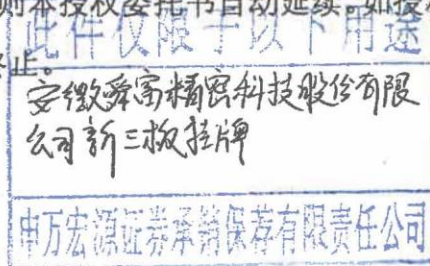 则本授权委托书自动延续。如授
此件仅限于以下用途
终止。
安徽舜富精密科技股份有限
公司新三板挂牌
申万宏源证券承销保荐有限责任公司